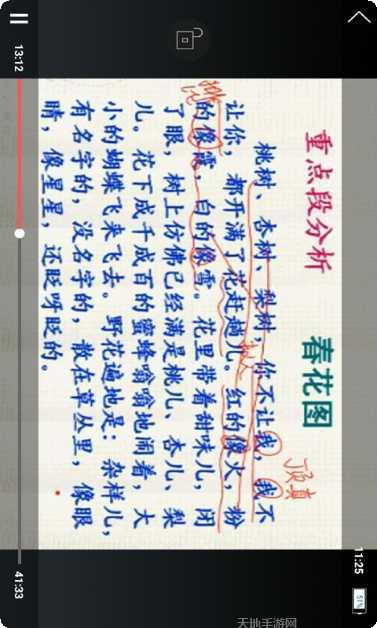 11:25
51%
重点段分析 春花图
顶真
桃树、杏树、梨树，你不让我，我不
拟人
让你，都开满了花赶趟儿。红的像火，粉
排比
的像霞，白的像雪。花里带着甜味儿，闭
了眼，树上仿佛已经满是桃儿、杏儿、梨
儿。花下成千成百的蜜蜂嗡嗡地闹着，大
小的蝴蝶飞来飞去。野花遍地是：杂样儿，
有名字的，没名字的，散在草丛里，像眼
睛，像星星，还眨呀眨的。
13:12
41:33
天地手游网